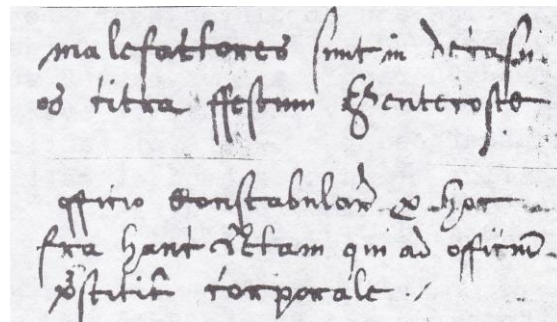 malefactores sunt in decasu
os citra ffestum Pentecoste
officio Constabular p hoc
fra hanc letam qui ad officiu
pstitit corporale